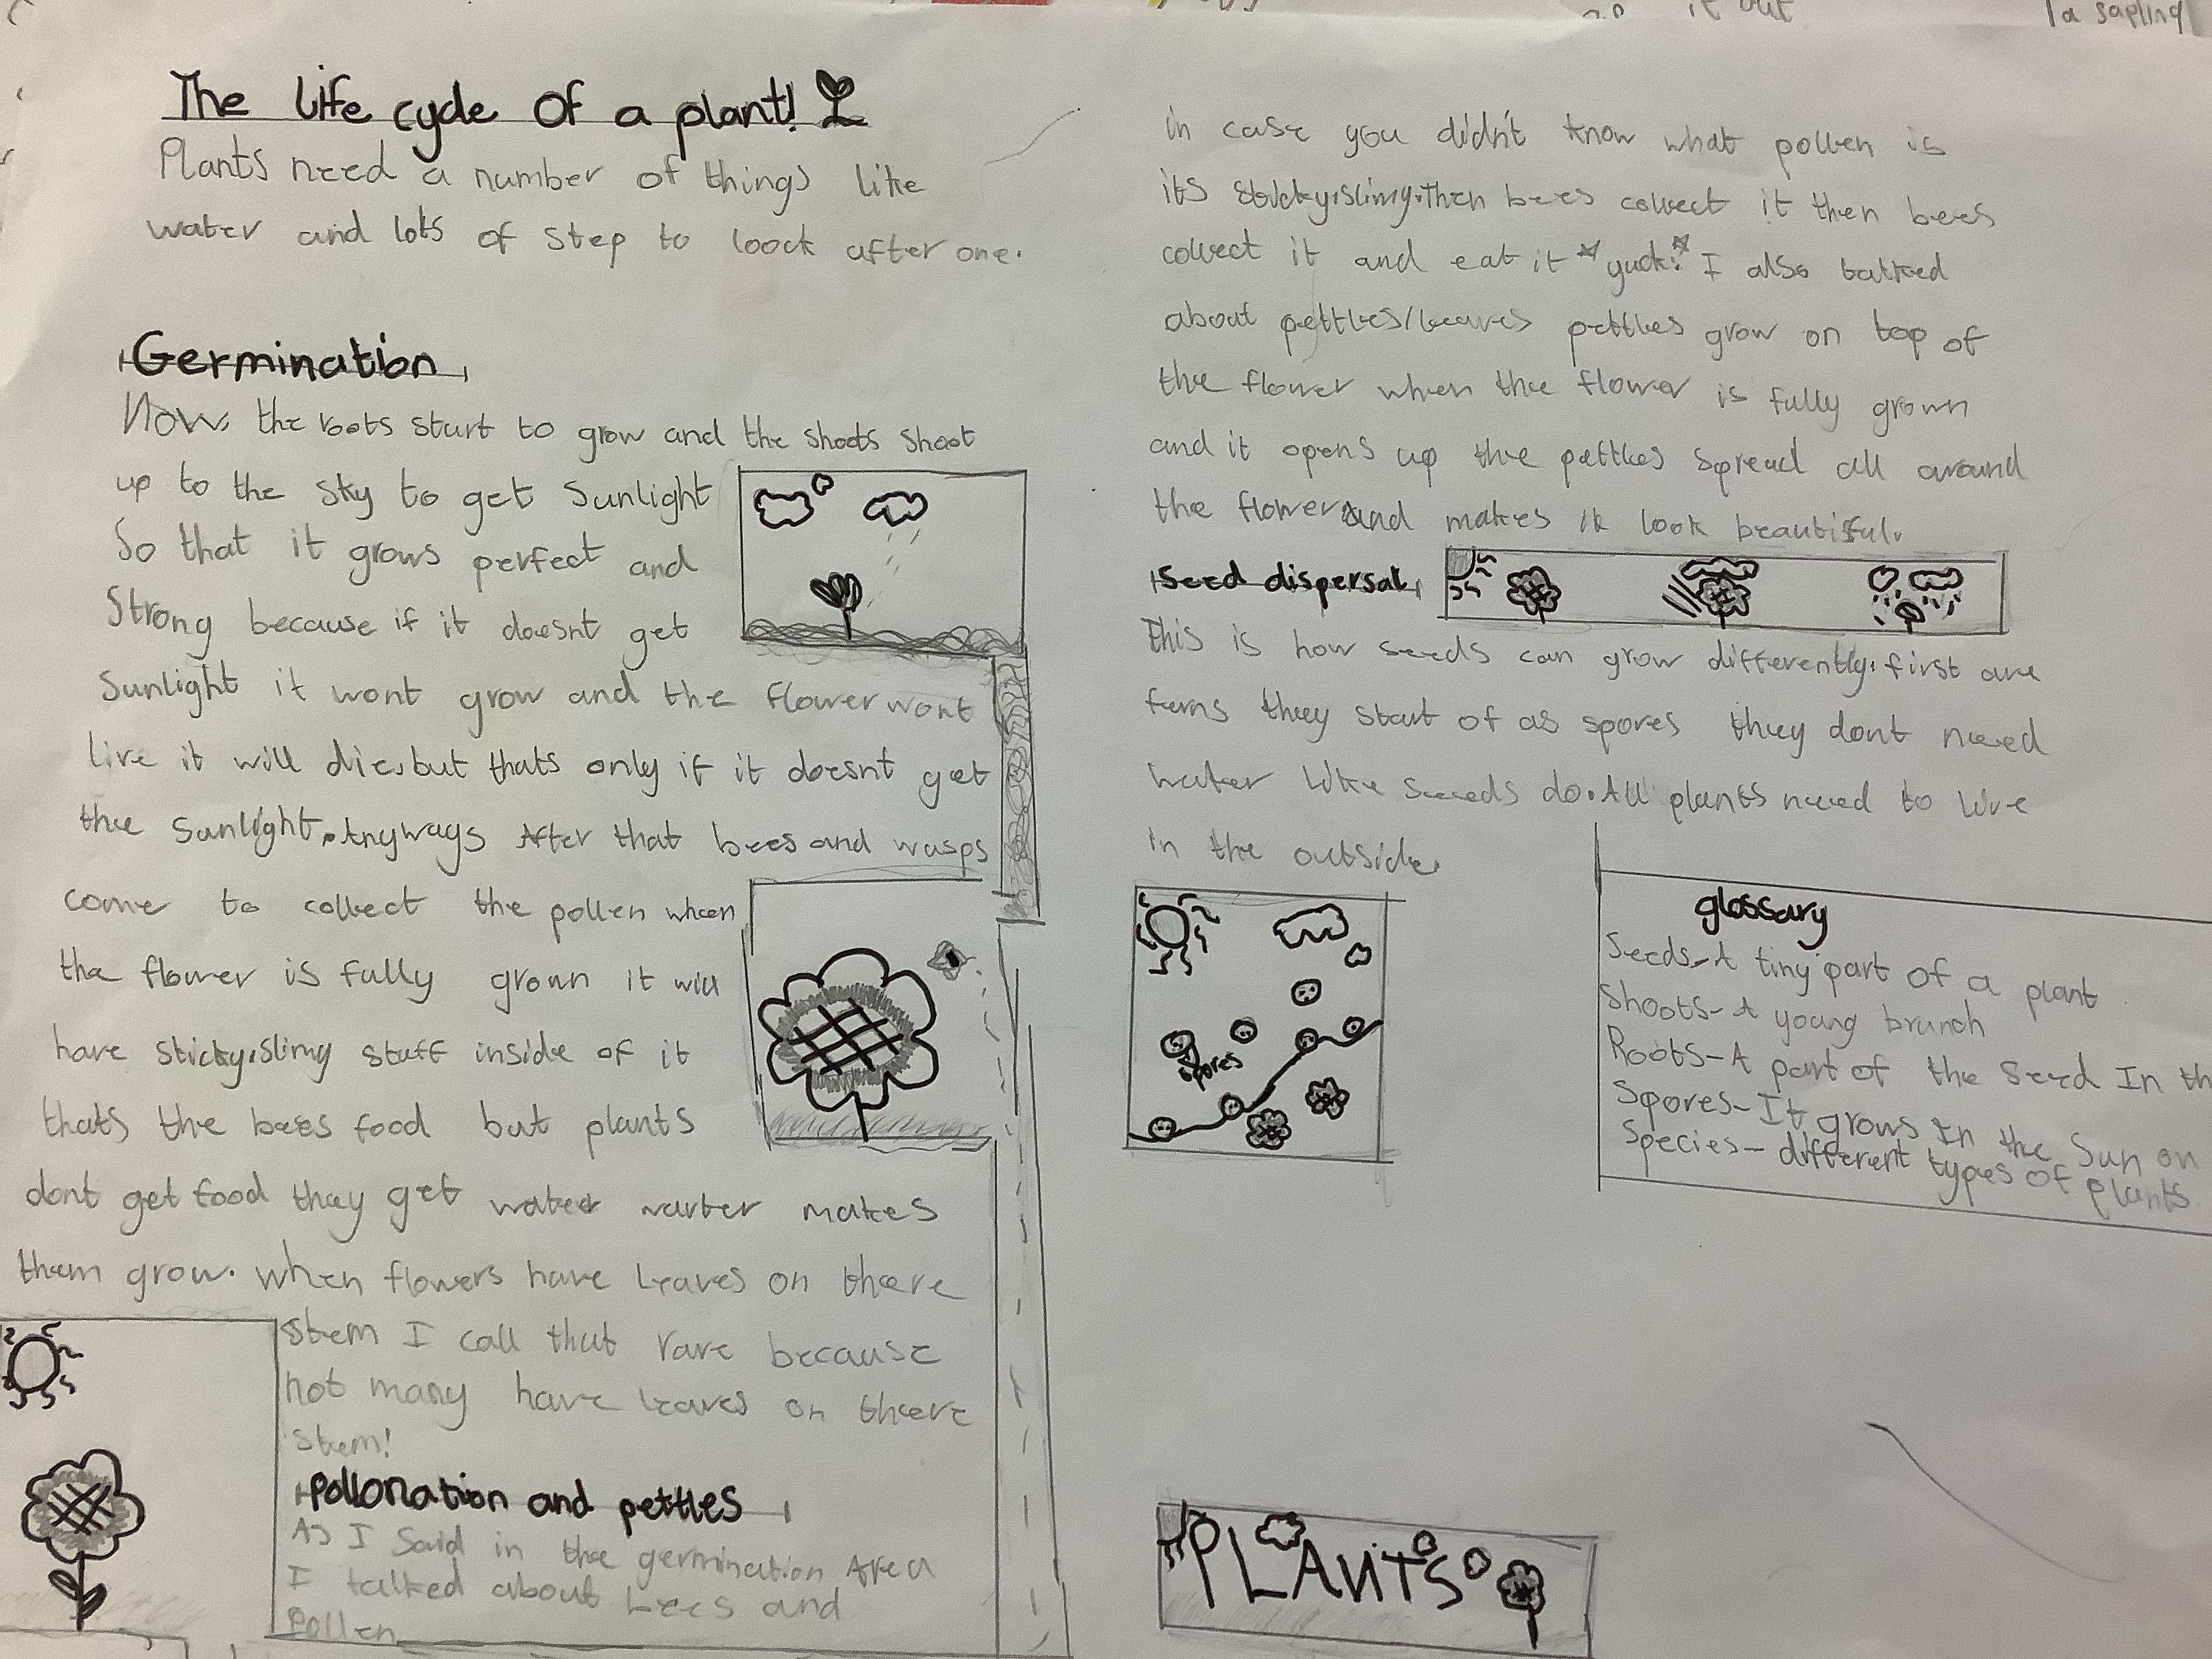 it out
a sapling
The life cycle of a plant!
Plants need a number of things like
water and lots of step to loock after one.
Germination
Now, the roots start to grow and the shoots shoot
up to the sky to get sunlight
So that it grows perfect and
Strong because if it doesnt get
Sunlight it wont grow and the flower wont
live it will die, but thats only if it doesnt get
the sunlight. Anyways After that bees and wasps
come to collect the pollen when
the flower is fully grown it will
have sticky,slimy stuff inside of it
thats the bees food but plants
dont get food they get water warter makes
them grow. When flowers have leaves on there
stem I call that rare because
not many have leaves on there
stem!
Pollonation and pettles
As I Said in the germination Area
I talked about bees and
Pollen
in case you didn't know what pollen is
its sticky,slimy.Then bees collect it then bees
collect it and eat it *yuck!* I also talked
about pettles/leaves pettles grow on top of
the flower when the flower is fully grown
and it opens up the pettles spread all around
the flower and makes it look beautiful.
Seed dispersal
This is how seeds can grow differently. first are
ferns they start of as spores they dont need
water like seeds do. All plants need to live
in the outside.
spores
glossary
Seeds-A tiny part of a plant
Shoots-A young branch
Roots-A part of the seed In th
Spores-It grows In the Sun on
Species-different types of plants.
PLANTS